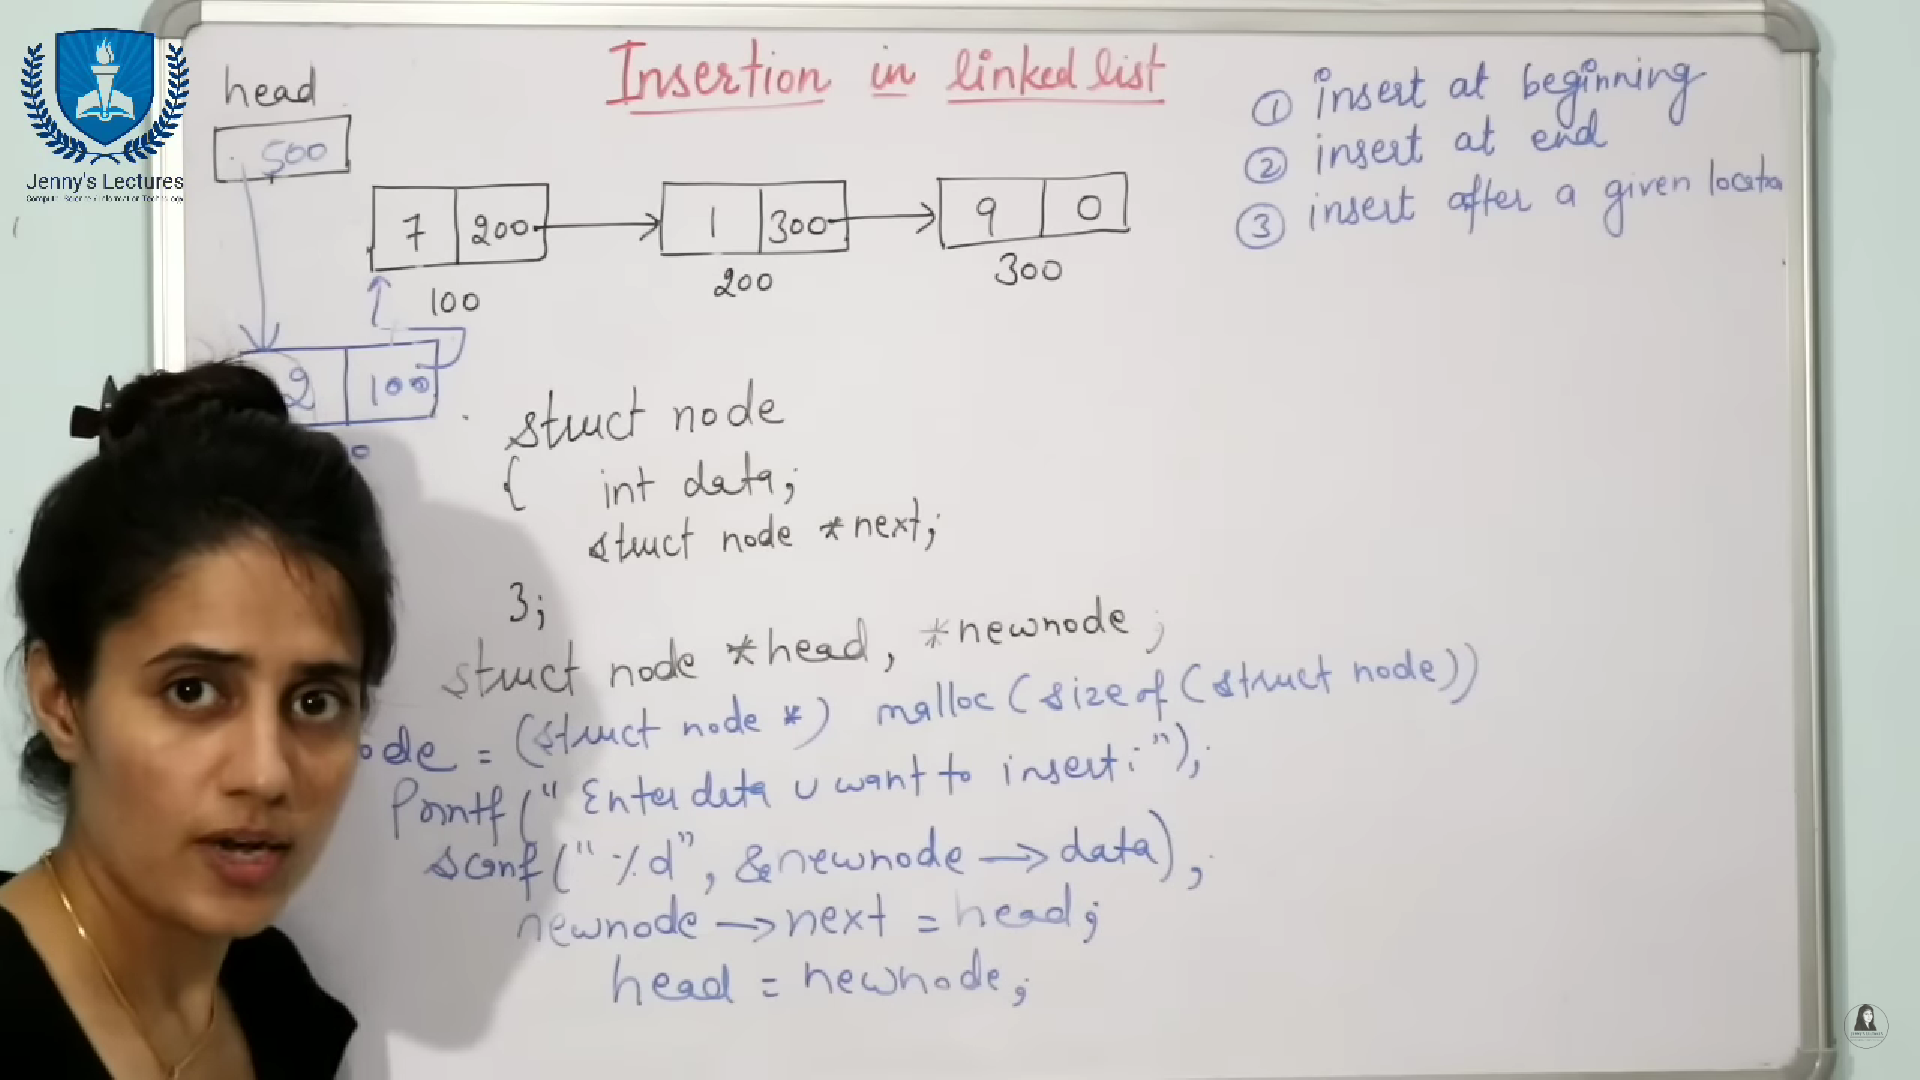 Jenny's Lectures
Insertion in linked list
head
500
7 200
1 300
9 0
100
200
300
2 100
① insert at beginning
② insert at end
③ insert after a given locatio
struct node
{ int data;
struct node *next;
};
struct node *head, *newnode;
ode = (struct node *) malloc (sizeof (struct node))
Printf(" Enter data u want to insert: ");
scanf("%d", &newnode → data);
newnode → next = head;
head = newnode;